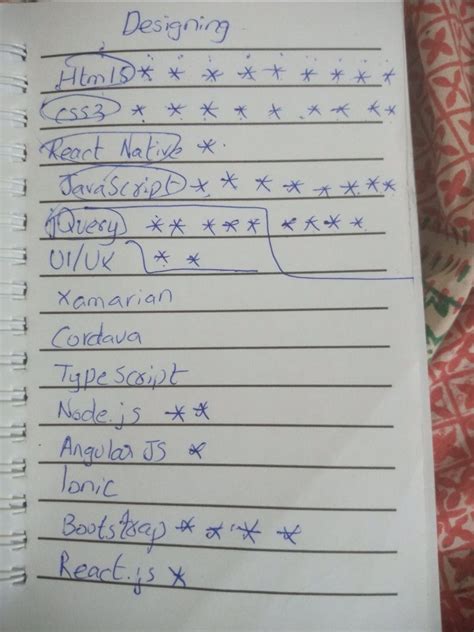 Designing
Html5 * * * * * * * * *
CSS3 * * * * * * * *
React Native *
JavaScript * * * * * * * *
jQuery * * * * * * * * *
UI/UX * *
Xamarian
Cordava
TypeScript
Node.js * *
Angular JS *
Ionic
Bootstrap * * * *
React.js *